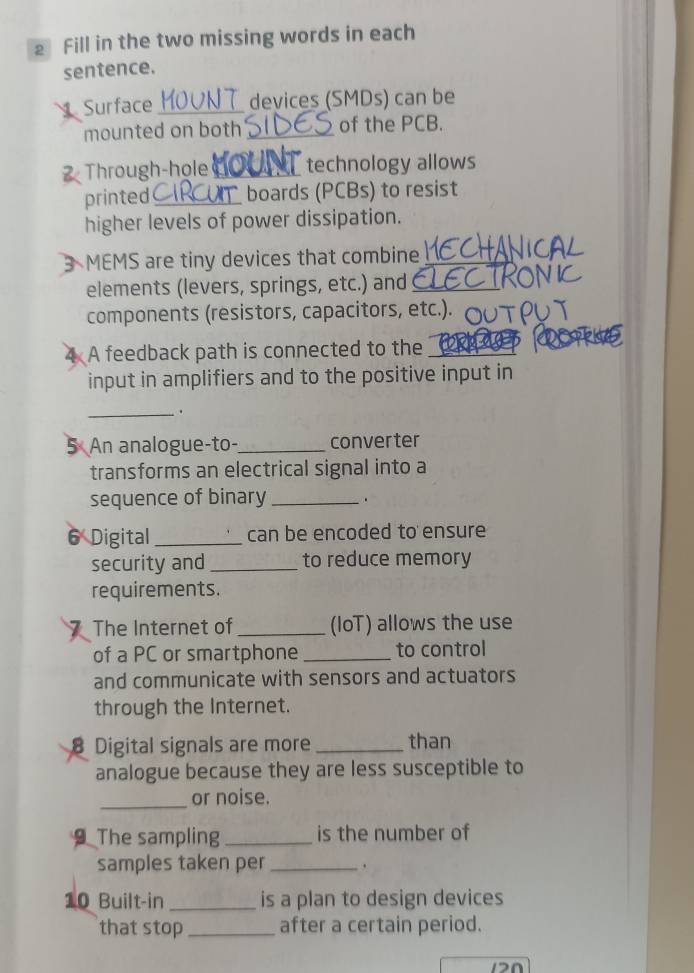 2 Fill in the two missing words in each
sentence.
1 Surface MOUNT devices (SMDs) can be
mounted on both SIDES of the PCB.
2 Through-hole MOUNT technology allows
printed CIRCUIT boards (PCBs) to resist
higher levels of power dissipation.
3 MEMS are tiny devices that combine MECHANICAL
elements (levers, springs, etc.) and ELECTRONIC
components (resistors, capacitors, etc.). OUTPUT
4 A feedback path is connected to the ________
input in amplifiers and to the positive input in
________.
5 An analogue-to-________ converter
transforms an electrical signal into a
sequence of binary ________.
6 Digital ________ can be encoded to ensure
security and ________ to reduce memory
requirements.
7 The Internet of ________ (IoT) allows the use
of a PC or smartphone ________ to control
and communicate with sensors and actuators
through the Internet.
8 Digital signals are more ________ than
analogue because they are less susceptible to
________ or noise.
9 The sampling ________ is the number of
samples taken per ________.
10 Built-in ________ is a plan to design devices
that stop ________ after a certain period.
/20